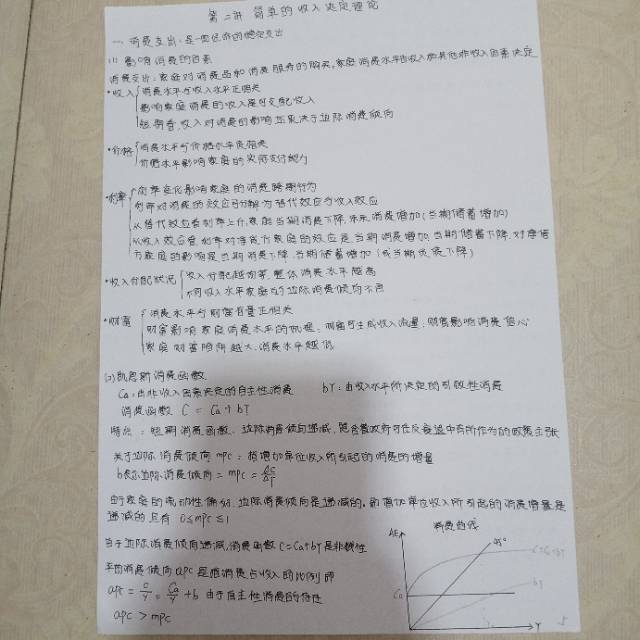 第二讲 简单的收入决定理论
一、消费支出:是一国经济的稳定支出
(1) 影响消费的因素
消费支出:家庭对消费品和消费服务的购买,家庭消费水平由收入和其他非收入因素决定
·收入 消费水平与收入水平正相关
影响家庭消费的收入是可支配收入
短期看,收入对消费的影响效果决于边际消费倾向
·价格 消费水平与价格水平负相关
价格水平影响家庭的实际支付能力
·利率 利率变化影响家庭的消费跨期行为
利率对消费的效应可分解为替代效应与收入效应
从替代效应看利率上升,家庭当期消费下降,未来消费增加(当期储蓄增加)
从收入效应看利率对净贷方家庭的效应是当期消费增加,当期储蓄下降.对净借
方家庭的影响是当期消费下降,当期储蓄增加(或当期负债下降)
·收入分配状况 收入分配越均等,整体消费水平越高
不同收入水平家庭的边际消费倾向不同
·财富 消费水平与财富存量正相关
财富影响家庭消费水平的机理:财富可生成收入流量;财富影响消费信心
家庭财富陷阱越大,消费水平越低
(2)凯恩斯消费函数
Ca:由非收入因素决定的自主性消费 bY:由收入水平所决定的引致性消费
消费函数 C = Ca+bY
特点:短期消费函数、边际消费倾向递减,隐含着政府可在反衰退中有所作为的政策主张
关于边际消费倾向 mpc:指增加单位收入所引起的消费的增量
b表示边际消费倾向 = mpc = ΔC/ΔY
由于家庭的流动性偏好,边际消费倾向是递减的,即增加单位收入所引起的消费增量是
递减的且有 0≤mpc≤1
由于边际消费倾向递减,消费函数 C=Ca+bY是非线性
平均消费倾向apc是指消费占收入的比例即
apc = C/Y = Ca/Y + b 由于自主性消费的存在
apc > mpc
消费曲线
AE
45°
C=Ca+bY
bY
Ca
Y